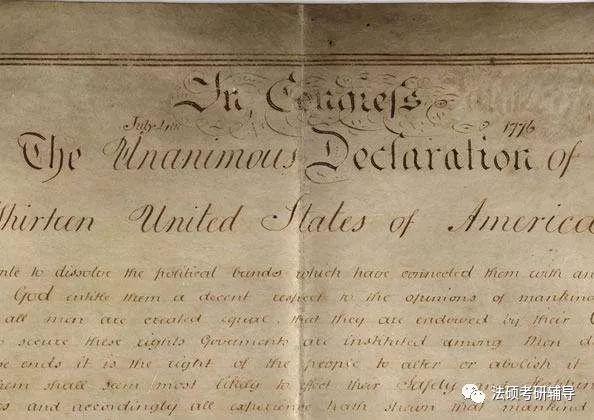 In Congress
July 1776
The Unanimous Declaration of
Thirteen United States of America
to dissolve the political bands which have connected them with an
God entitle them a decent respect to the opinions of mankin
all men are created equal, that they are endowed by their
secure these rights Goverments are instituted among Men d
ends it is the right of the people to alter or abolish it
shall seem most likely to effect their Safety and
and accordingly all experience hath shewn that mankind
法硕考研辅导